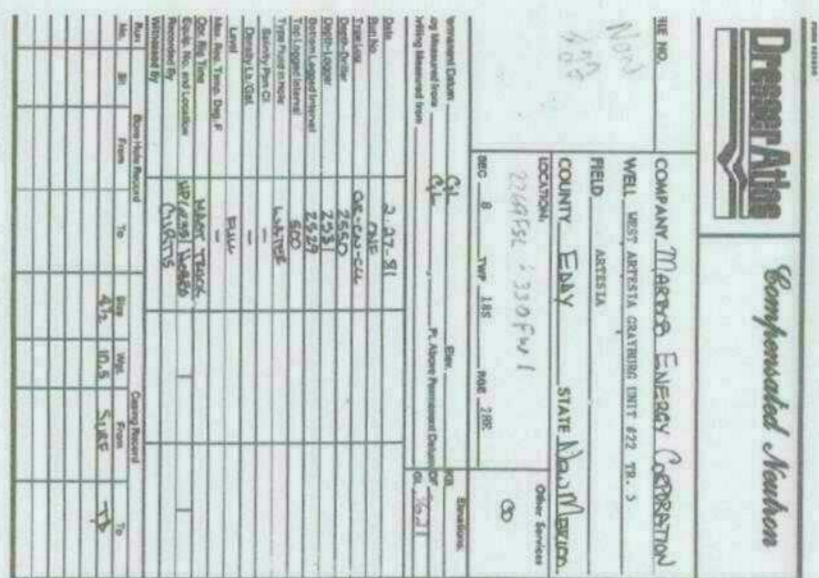 Dresser Atlas
Compensated Neutron
FILE NO.
COMPANY MARBOB ENERGY CORPORATION
WELL WEST ARTESIA GRAYBURG UNIT #22 TR. 3
FIELD ARTESIA
COUNTY EDDY STATE New Mexico
LOCATION:
2269 FSL & 330 FWL
Other Services
SEC 8 TWP 18S RGE 28E
Permanent Datum GL Elev.
Log Measured from GL Ft. Above Permanent Datum
Drilling Measured from
Elevations:
KB
DF
GL 3621
Date 2-27-81
Run No. ONE
Type Log GR-CN-CCL
Depth-Driller 2550
Depth-Logger 2531
Bottom Logged Interval 2529
Top Logged Interval 500
Type Fluid in Hole WATER
Salinity Ppm Cl. —
Density Lb./Gal. —
Level FULL
Max. Rec. Temp. Deg. F. —
Opr. Rig Time
Equip. No. and Location HOBBS
Recorded By CURTIS
Witnessed By
Run Bore-Hole Record Casing Record
No. Bit From To Size Wgt. From To
4½ 10.5 SURF TD